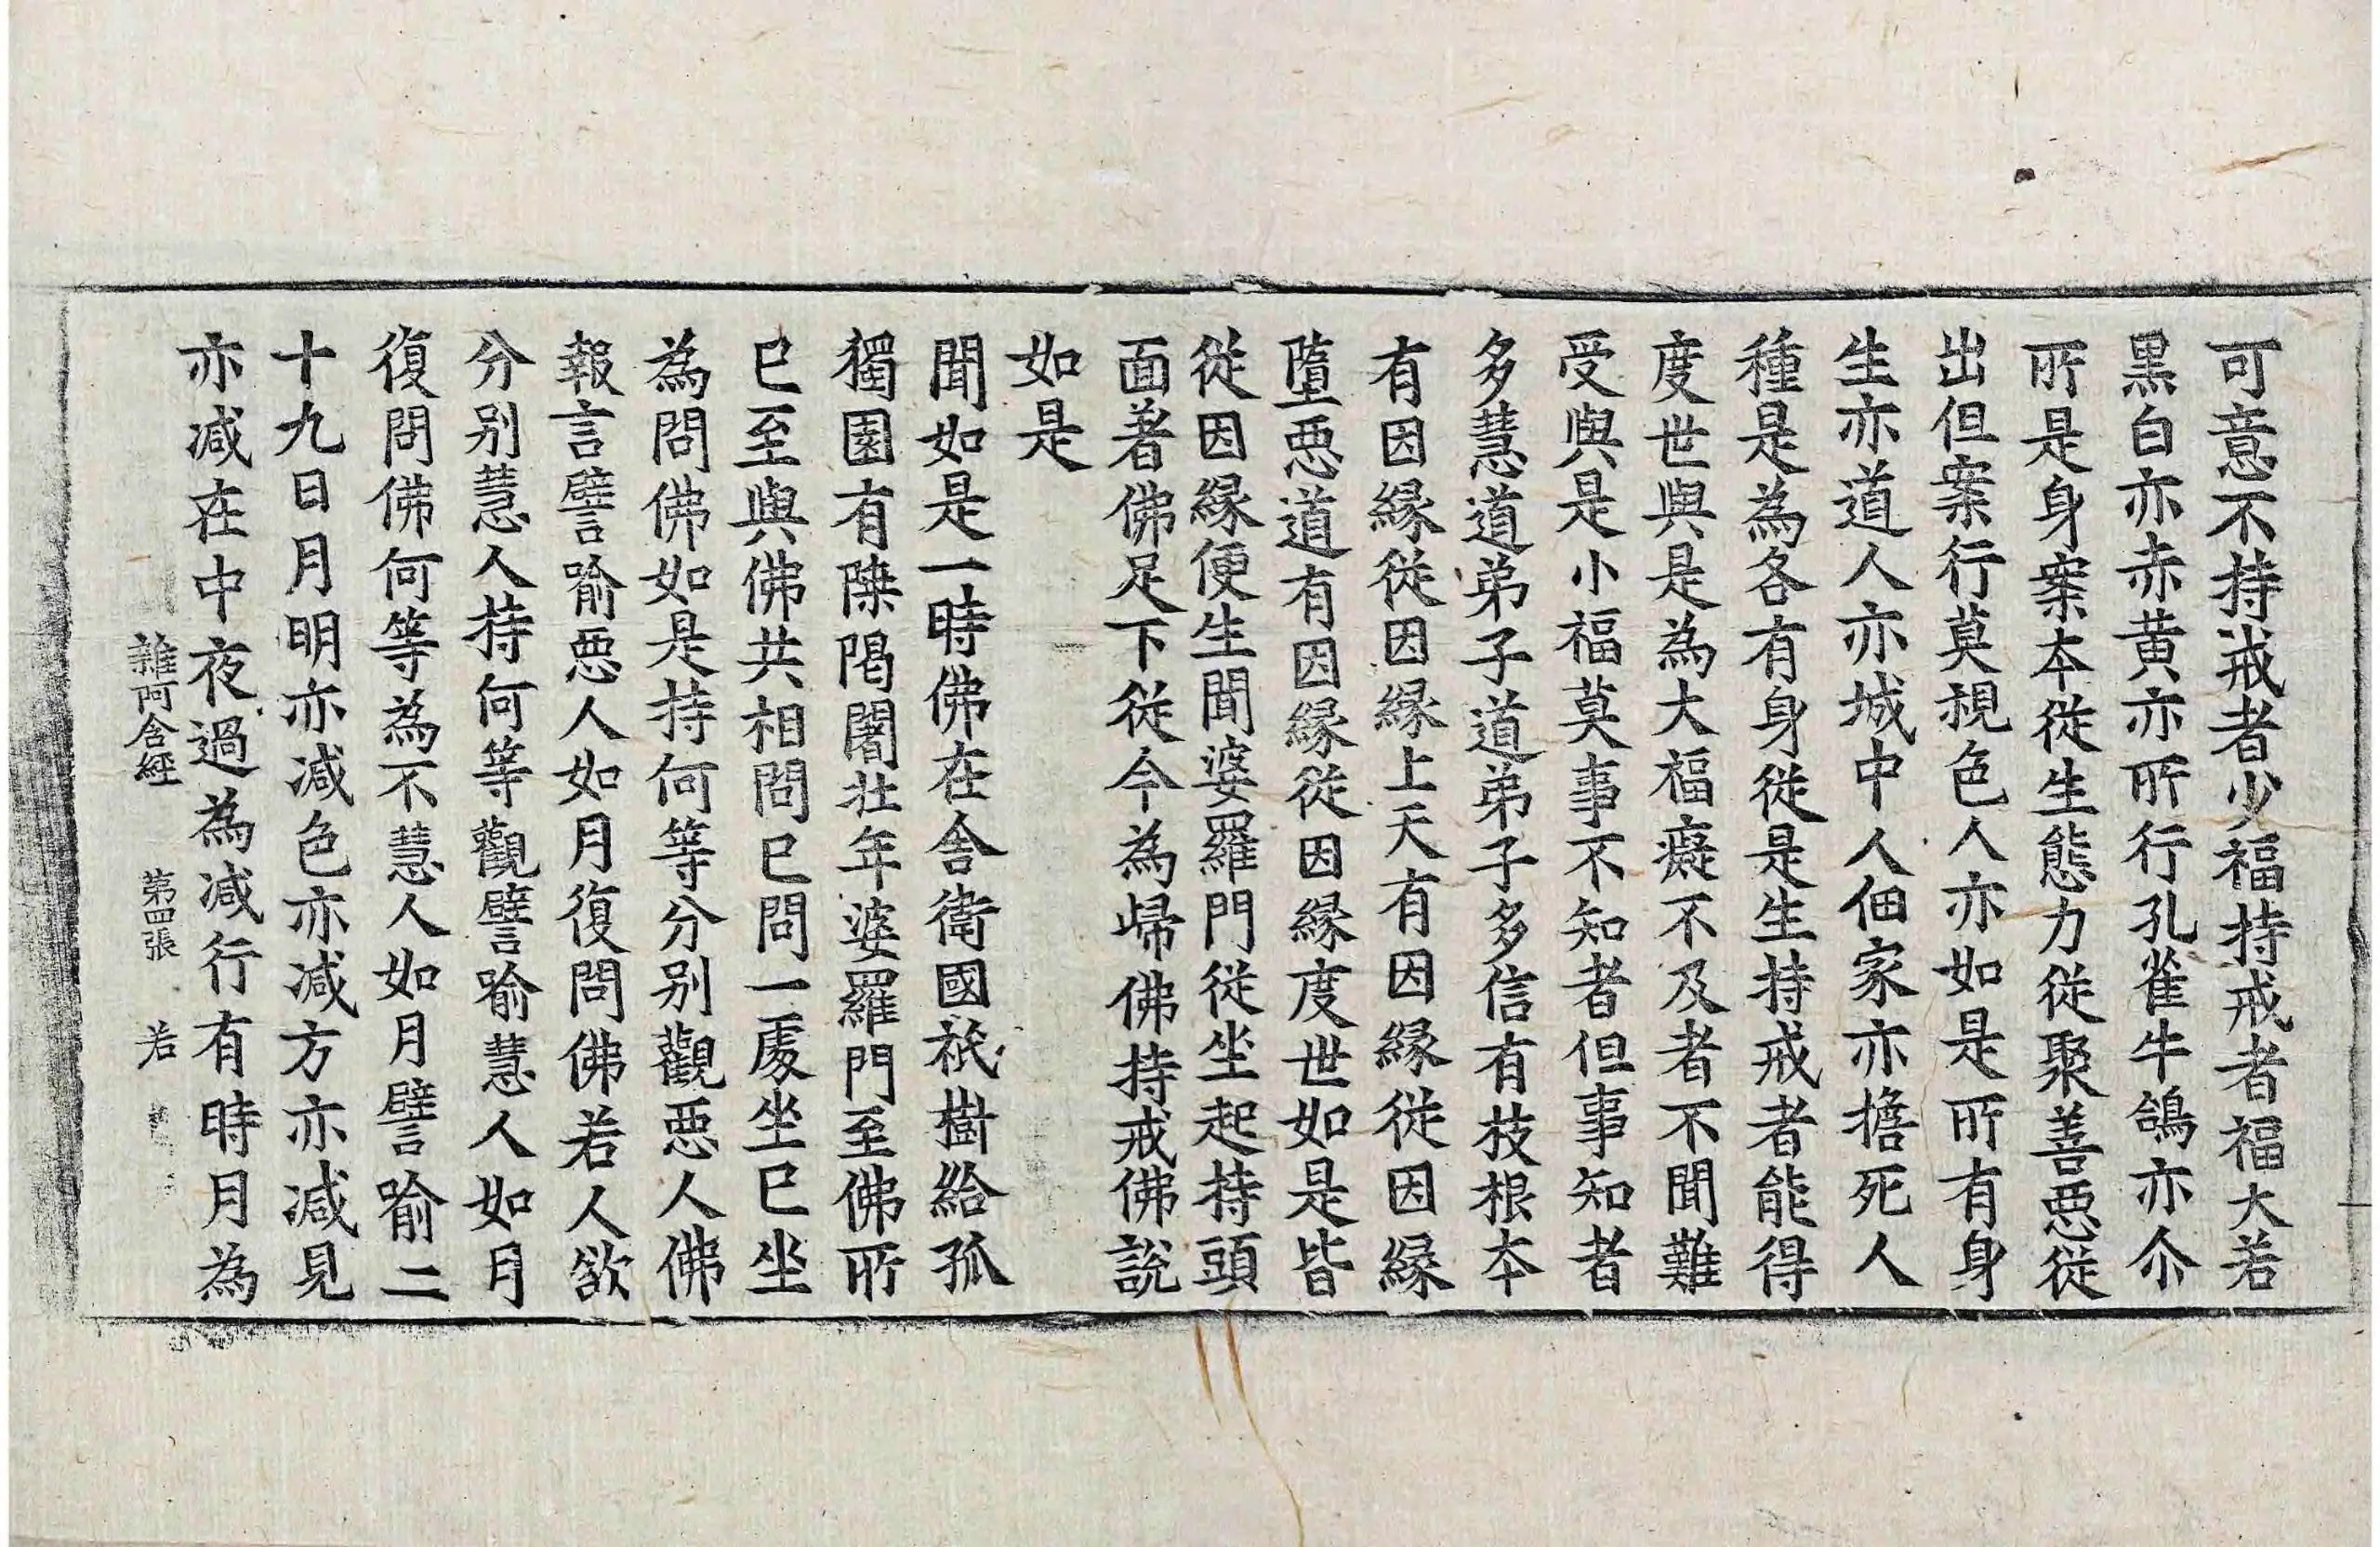 可意不持戒者少福持戒者福大若
黒白亦赤黄亦所行孔雀牛鴿亦尒
所是身案夲従生態力従聚善惡従
出但案行莫視色人亦如是所有身
生亦道人亦城中人佃家亦擔死人
種是為各有身従是生持戒者能得
度世與是為大福癡不及者不聞難
受與是小福莫事不知者但事知者
多慧道弟子道弟子多信有枝根夲
有因縁従因縁上天有因縁従因縁
墮惡道有因縁従因縁度世如是皆
従因縁便生聞婆羅門従坐起持頭
面著佛足下従今為歸佛持戒佛說
如是
聞如是一時佛在舎衛國祇樹給孤
獨園有𨻶陽闍壮年婆羅門至佛所
已至與佛共相問已問一處坐已坐
為問佛如是持何等分別觀惡人佛
報言譬喻惡人如月復問佛若人欲
分別慧人持何等觀譬喻慧人如月
復問佛何等為不慧人如月譬喻二
十九日月明亦减色亦减方亦减見
亦减在中夜過為减行有時月為
雜阿含經 第四張 若